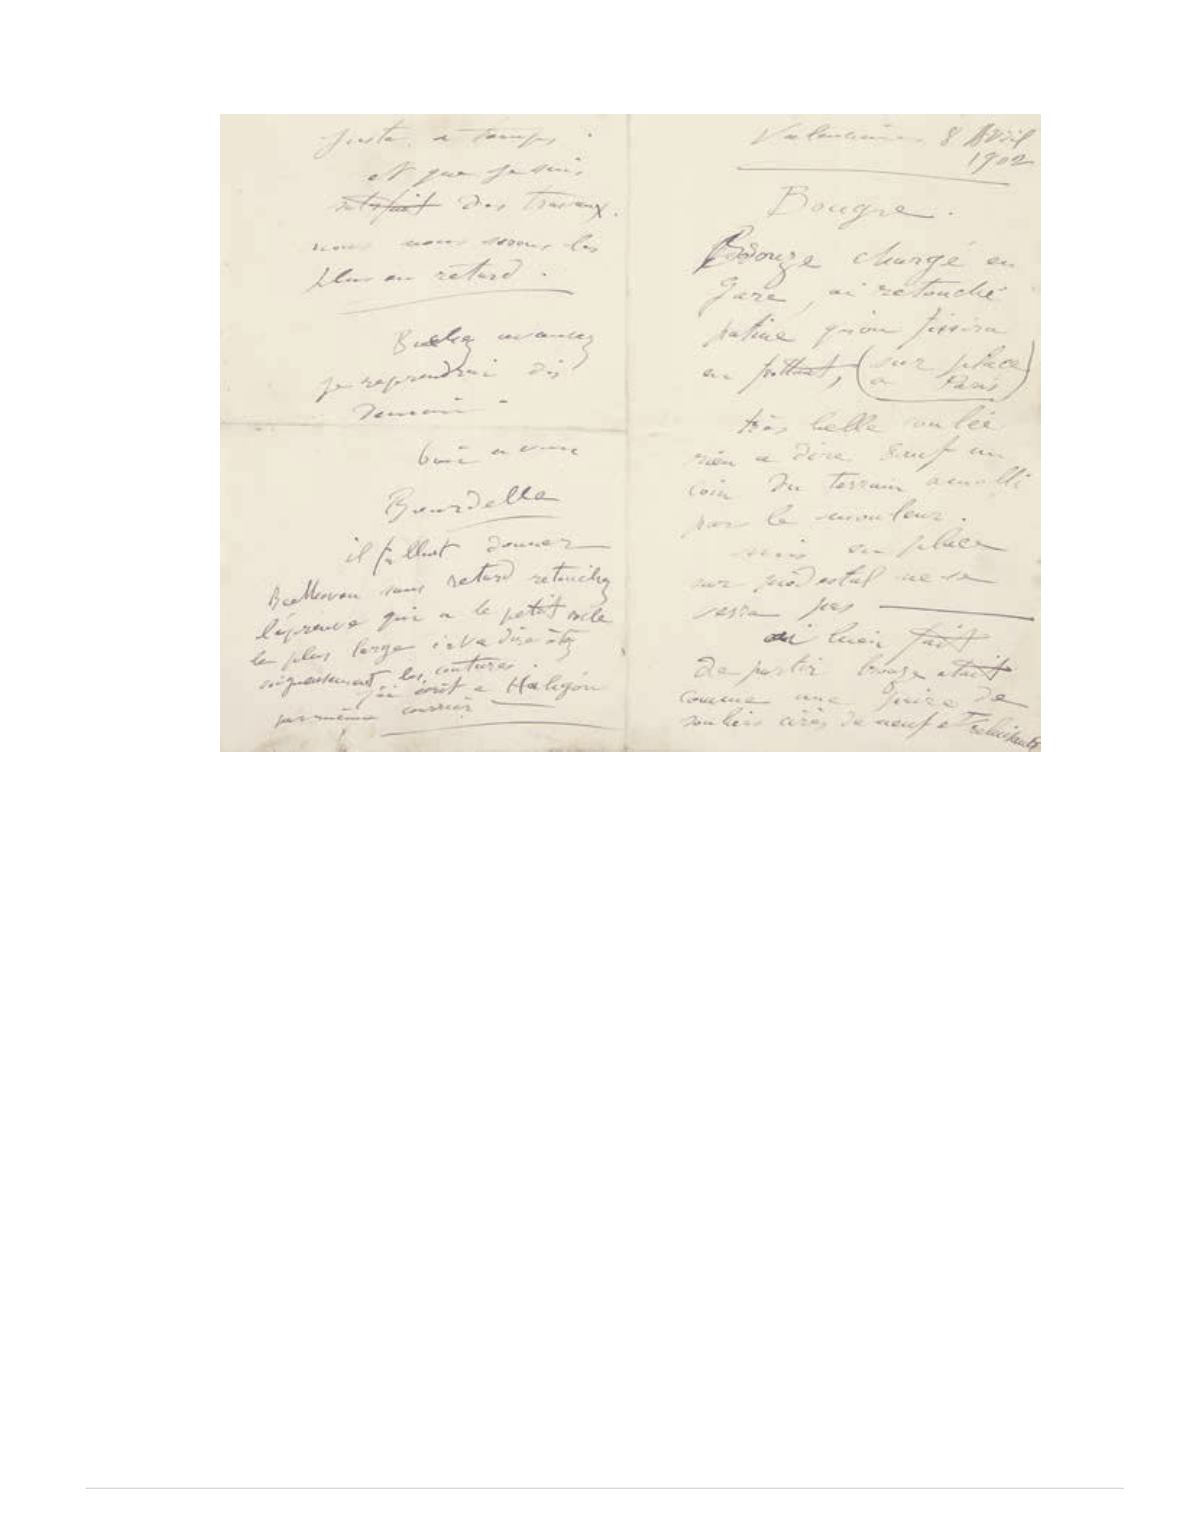 Valenciennes 8 Avril
1902
Bougre.
Bronze chargé en
gare, ai retouché
patine qu'on fixera
en frottant, (sur place
a Paris)
très belle coulée
rien a dire sauf un
coin du terrain amolli
par le mouleur.
mais en place
sur piédestal ne se
verra pas
ai bien fait
de partir bronze était
comme une paire de
souliers cirés de neuf et reluisants
juste a temps.
et que je suis
satisfait des travaux.
nous nous serons les
plus en retard.
avancez
je reprendrai dès
demain
bien a vous
Bourdelle
il fallait donner
Beethoven sans retard retouchez
l'épreuve qui a le petit socle
le plus large c'est a dire ôtez
soigneusement les coutures.
j'ai écrit a Haligon
par même courrier